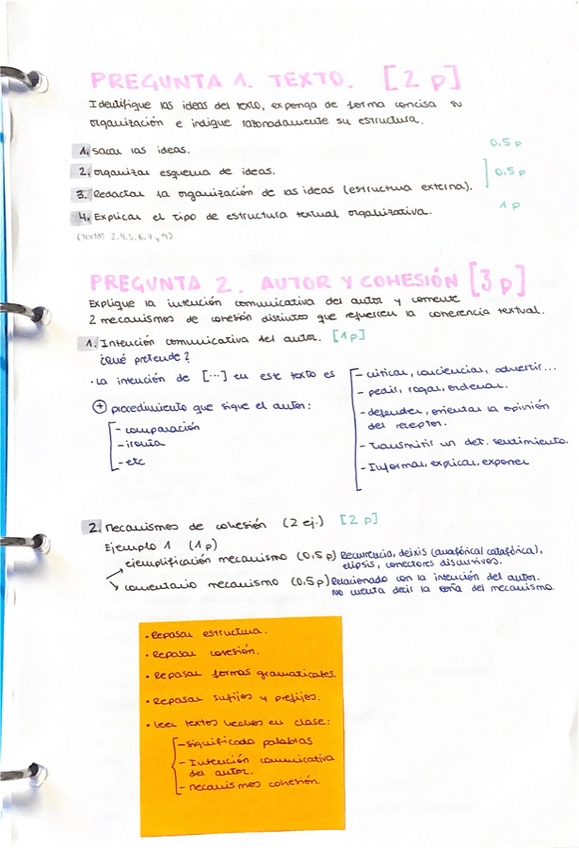 PREGUNTA 1. TEXTO. [2 p]
Identifique las ideas del texto, exponga de forma concisa su
organización e indique razonadamente su estructura.
1. Sacar las ideas. 0,5 p
2. Organizar esquema de ideas.
3. Redactar la organización de las ideas (estructura externa). ] 0,5 p
4. Explicar el tipo de estructura textual organizativa. 1 p
(Textos 2,4,5,6,7, 9)
PREGUNTA 2. AUTOR Y COHESIÓN [3 p]
Explique la intención comunicativa del autor y comente
2 mecanismos de cohesión distintos que refuercen la coherencia textual.
1. Intención comunicativa del autor. [1 p]
¿Qué pretende?
· La intención de [...] en este texto es
- criticar, concienciar, advertir...
- pedir, rogar, ordenar.
- defender, orientar la opinión
del receptor.
- Transmitir un det. sentimiento.
- Informar, explicar, exponer
+ procedimiento que sigue el autor:
- comparación
- ironía
- etc
2. Mecanismos de cohesión (2 ej.) [2 p]
Ejemplo 1 (1 p)
ejemplificación mecanismo (0,5 p) Recurrencia, deixis (anafórica/catafórica),
elipsis, conectores discursivos.
comentario mecanismo (0,5 p) Relacionado con la intención del autor.
No cuenta decir la teoría del mecanismo.
· Repasar estructura.
· Repasar cohesión.
· Repasar formas gramaticales.
· Repasar sufijos y prefijos.
· Leer textos hechos en clase:
- Significado palabras
- Intención comunicativa
del autor.
- mecanismos cohesión